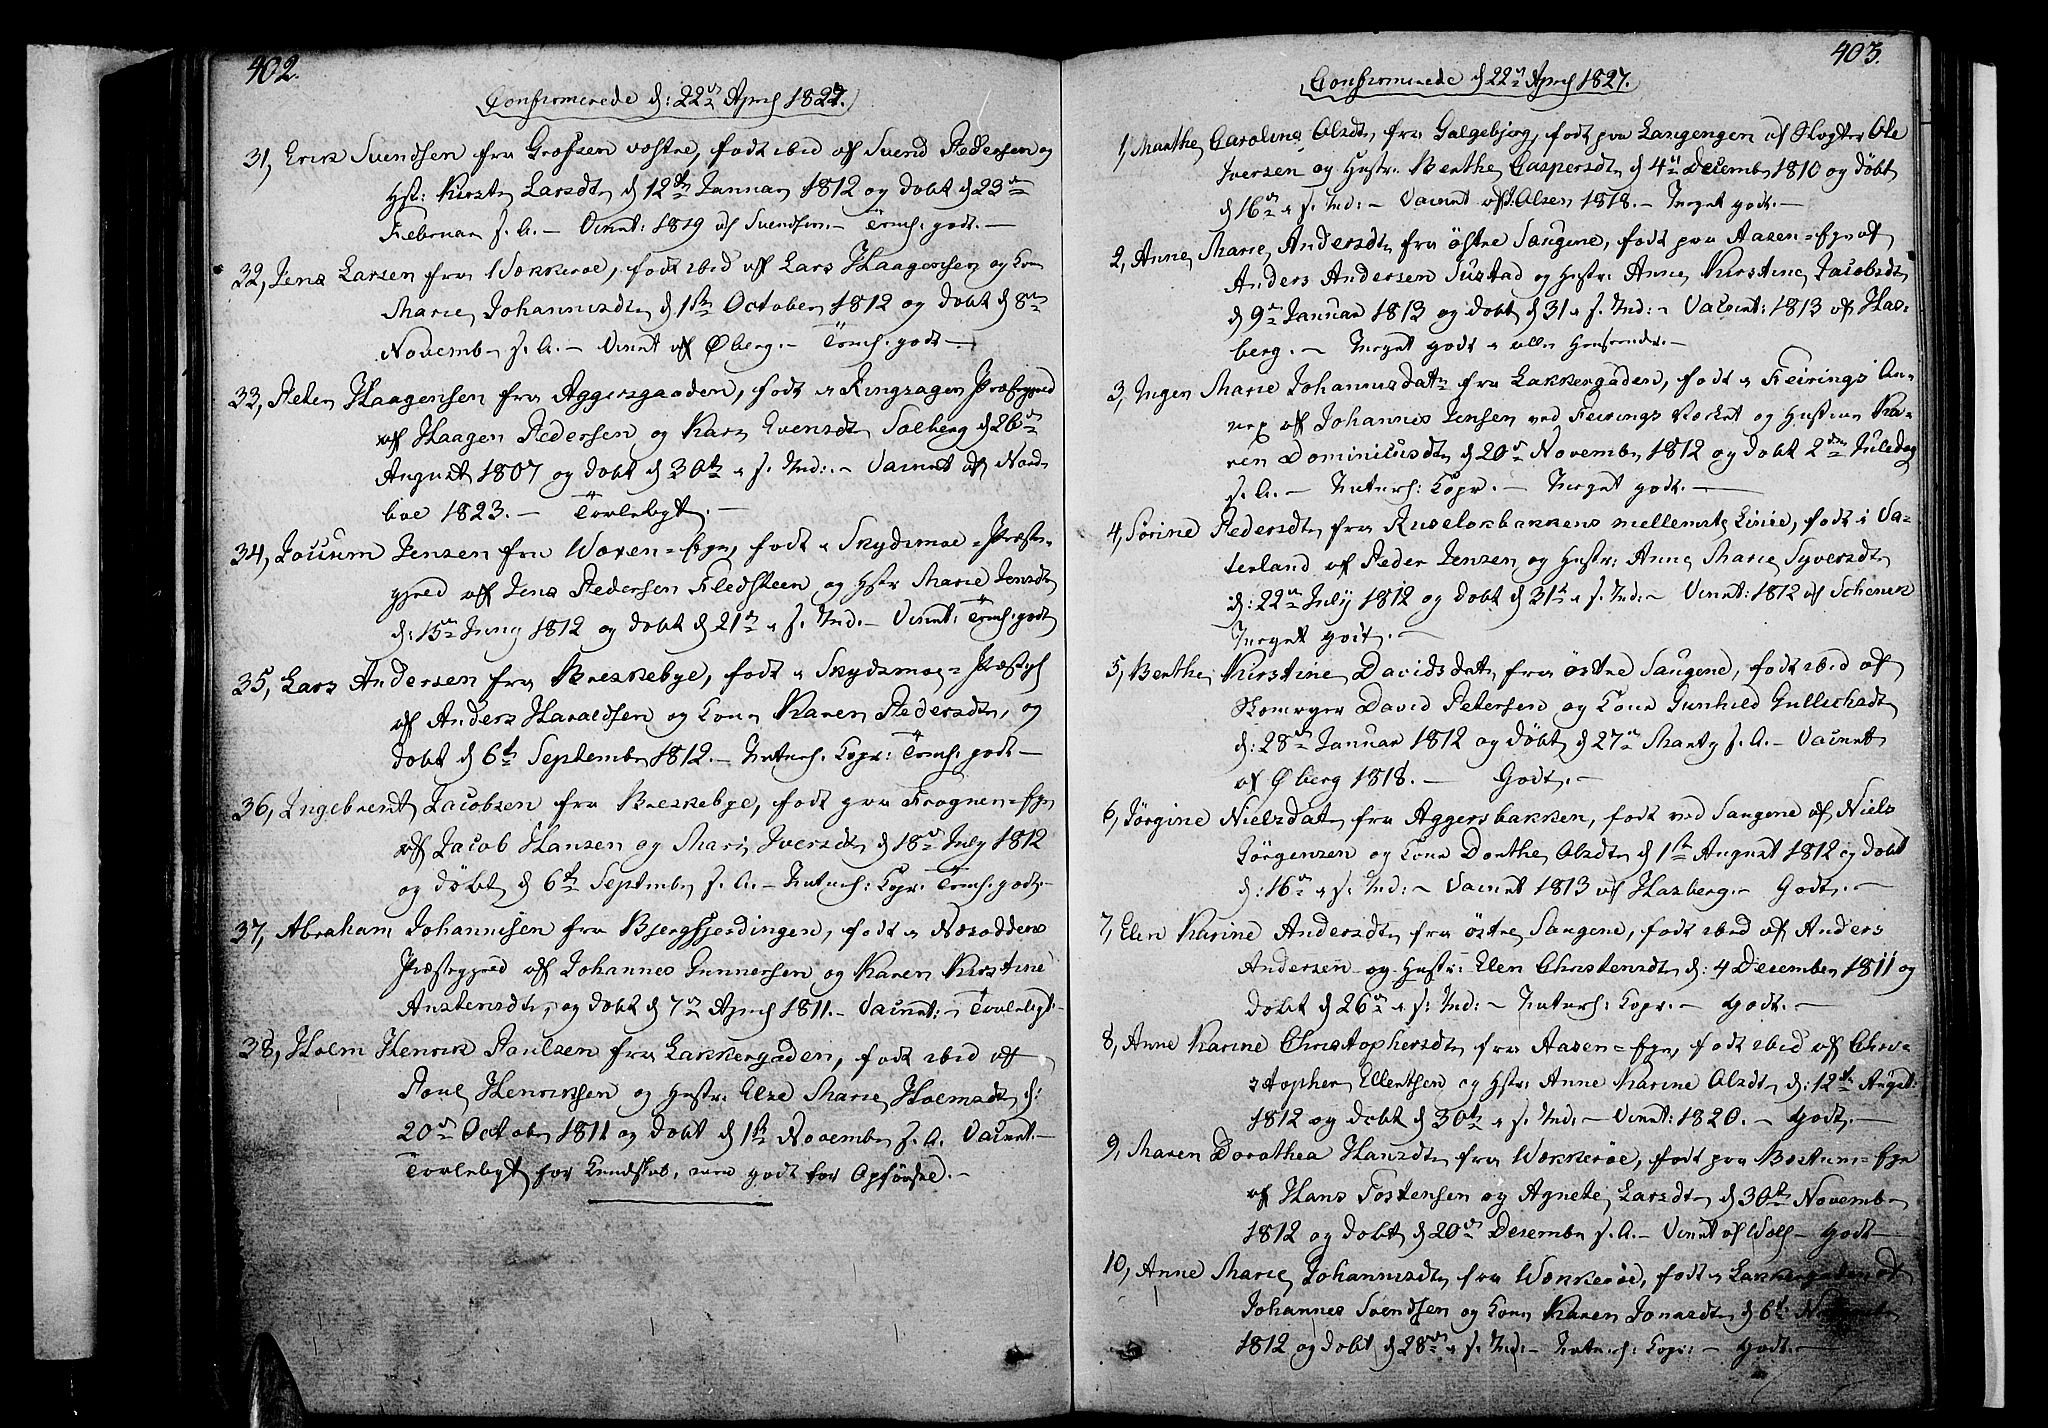 402.
Confirmerede d: 22de April 1827.
31, Erik Svendsen fra Grefsen vestre, født ibid af Svend Pedersen og
Hst: Kirsti Larsdt, d 12te Januar 1812 og døbt d 23de
Februar s. A. – Vaccint: 1819 af Svendsen. – Tems. godt. –
32, Jens Larsen fra Wækkerøe, født ibid af Lars Haagensen og Kone
Marie Johannesdt, d 1ste October 1812 og døbt d 8de
Novembr s. A. – Vaccint af Øberg. – Tems. godt –
33, Peder Haagensen fra Aggersgaden, født i Ringsager Præstegjeld
af Haagen Pedersen og Kari Evensdt Solberg d 26de
August 1807 og døbt d 30te i s. Md: – Vaccint af Nord
boe 1823. – Taalelegt. –
34, Jocum Jensen fra Woxen=Eyer, født i Skydsmoe=Præste-
gjeld af Jens Pedersen Fledsteen og Hstr Marie Jensdt
d: 15de Juny 1812 og døbt d 21de i s. Md. – Vaccint: Tems: godt
35, Lars Andersen fra Breskebye, født i Skydsmoe=Præstgj
af Anders Haraldsen og Kone Karen Pedersdt, og
døbt d 6te Septembr 1812. – Naturl. Kopr: Tems: godt –
36, Ingebrent Jacobsen fra Breskebye, født paa Frogner=Eyer
af Jacob Hansen og Mari Iversdt d 18de July 1812
og døbt d 6te Septembr s. A. – Naturl: Kopr: Tems: godt. –
37, Abraham Johannesen fra Bjergfjerdingen, født i Næsoddens
Præstegjeld af Johannes Gunnersen og Karen Kirstine
Anstensdt, og døbt d 7de April 1811. – Vaccint: – Taalelegt. –
38, Holm Henrik Paulsen fra Lakkergaden, født ibid af
Paul Henriksen og Hustr: Else Marie Holmsdt d:
20de Octobr 1811 og døbt d 1ste Novembr s. A. Vaccint. –
Taalelegt for Kundskab, men godt for Opførsel. –
403.
Confirmerede d 22de April 1827.
1, Marthe Caroline Olsdt, fra Galgebjerg, født paa Langengen af Slagter Ole
Iversen og Hustr: Berthe Caspersdt d 4de Decembr 1810 og døbt
d 16de i s. Md: – Vaccint af J. Olsen 1818. – Meget godt. –
2, Anne Marie Andersdt fra østre Saugene, født paa Aasen=Eye af
Anders Andersen Sustad og Hustr: Anne Kirstine Jacobsdt
d 9de Januar 1813 og døbt d 31 i s. Md: – Vaccint: 1813 af Has-
berg. – Meget godt i alle Henseender. –
3, Inger Marie Johannesdatr fra Lakkergaden, født i Feirings An-
nex af Johannes Jensen ved Feirings Værket og Hustrue Ka-
ren Dominicusdt, d 20de Novembr 1812 og døbt 2den Juledag
s. A. – Naturl: Kopr. – Meget godt. –
4, Sørine Pedersdt, fra Ruseløkbakkens mellemste Linie, født i Va-
terland af Peder Jensen og Hustr: Anne Marie Syversdt
d: 22de July 1812 og døbt d 31te i s. Md: – Vaccint: 1812 af Schenck
Meget godt. –
5, Berthe Kirstine Davidsdatr fra østre Saugene, født ibid af
Skomager David Petersen og Kone Gunhild Gullichsdt
d: 28de Januar 1812 og døbt d 27de Marty s. A. – Vaccint
af Øberg 1818. – Godt. –
6, Jørgine Nielsdatr fra Aggersbakken, født ved Saugene af Niels
Jørgensen og Kone Dorthe Olsdt, d 1ste August 1812 og døbt
d: 16de i s. Md: – Vaccint 1813 af Hasberg. – Godt. –
7, Elen Karine Andersdt, fra østre Saugene, født ibid af Anders
Andersen og Hustr: Elen Christensdt d: 4 Decembr 1811 og
døbt d 26de i s: Md: – Naturl: Kopr. – Godt. –
8, Anne Karine Christophersdt, fra Aasen=Eye, født ibid af Chri-
stopher Ellertsen og Hstr: Anne Karine Olsdt, d: 12te August
1812 og døbt d 30te i s. Md: – Vaccint: 1820. – Godt. –
9, Maren Dorothea Hansdt, fra Wækkerøe, født paa Bestum=Eye
af Hans Tostensen og Agnete Larsdt, d 30te Novembr
1812 og døbt d 20de Desembr s. A. – Vaccint af Wolf – Godt –
10, Anne Marie Johannesdt, fra Wækkerøe, født i Lakkergaden af
Johannes Svendsen og Kone Karen Jonasdt, d 6te
1812 og døbt d 28de i s. Md. – Naturl: Kopr: – Godt. –